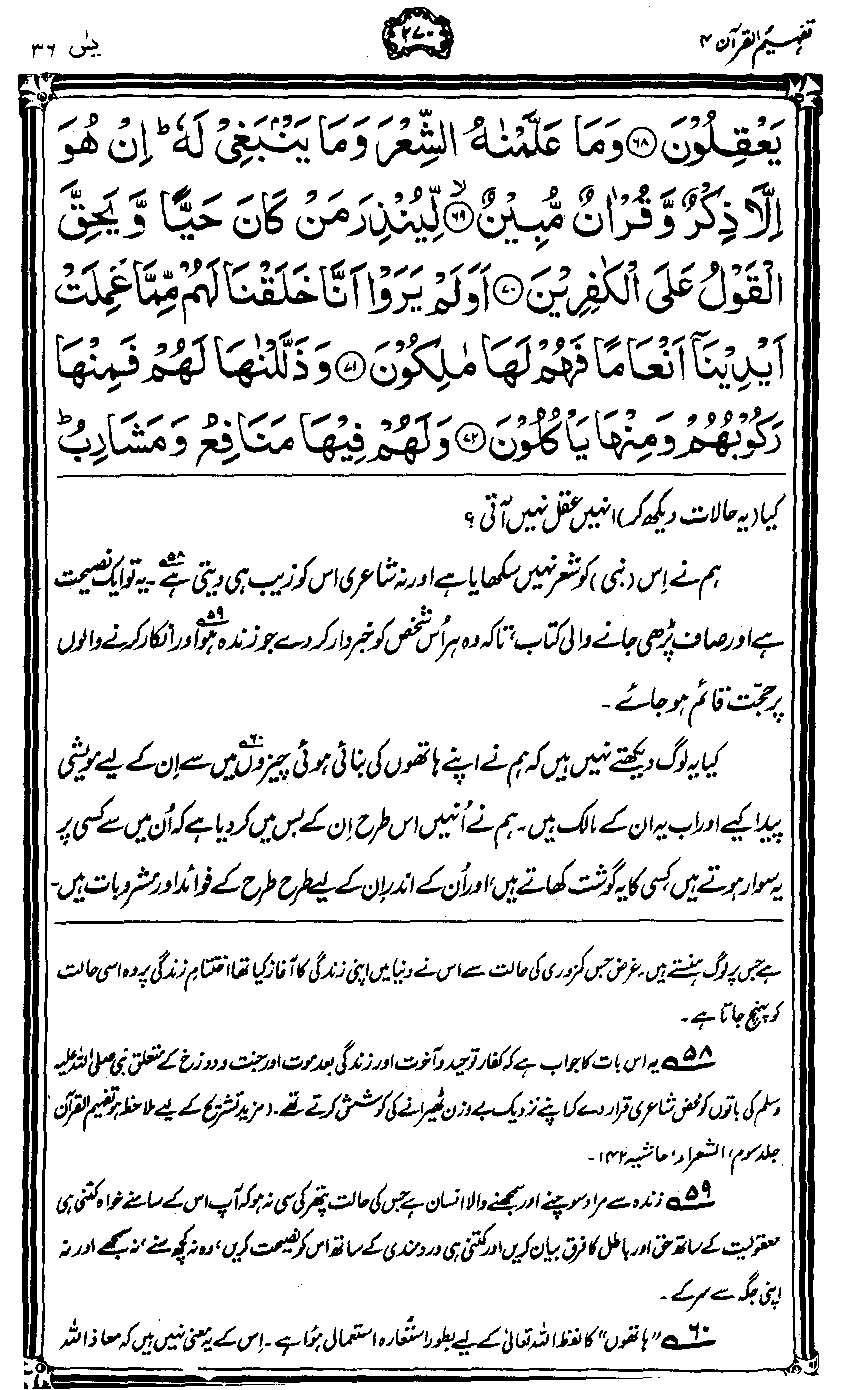 تفہیم القرآن ۴
۲۷۰
یٰسٓ ۳۶
يَعْقِلُوْنَ ﴿۶۸﴾ وَمَا عَلَّمْنٰهُ الشِّعْرَ وَمَا يَنْۢبَغِيْ لَهٗ ؕ اِنْ هُوَ
اِلَّا ذِكْرٌ وَّقُرْاٰنٌ مُّبِيْنٌ ﴿۶۹﴾ۙ لِّيُنْذِرَ مَنْ كَانَ حَيًّا وَّيَحِقَّ
الْقَوْلُ عَلَى الْكٰفِرِيْنَ ﴿۷۰﴾ اَوَلَمْ يَرَوْا اَنَّا خَلَقْنَا لَهُمْ مِّمَّا عَمِلَتْ
اَيْدِيْنَاۤ اَنْعَامًا فَهُمْ لَهَا مٰلِكُوْنَ ﴿۷۱﴾ وَذَلَّلْنٰهَا لَهُمْ فَمِنْهَا
رَكُوْبُهُمْ وَمِنْهَا يَاْكُلُوْنَ ﴿۷۲﴾ وَلَهُمْ فِيْهَا مَنَافِعُ وَمَشَارِبُ ؕ
کیا (یہ حالات دیکھ کر) انہیں عقل نہیں آتی ؟
ہم نے اِس (نبی) کو شعر نہیں سکھایا ہے اور نہ شاعری اس کو زیب ہی دیتی ہے۵۸۔ یہ تو ایک نصیحت
ہے اور صاف پڑھی جانے والی کتاب، تاکہ وہ ہر اُس شخص کو خبردار کر دے جو زندہ ہو۵۹ اور انکار کرنے والوں
پر حجّت قائم ہو جائے۔
کیا یہ لوگ دیکھتے نہیں ہیں کہ ہم نے اپنے ہاتھوں کی بنائی ہوئی چیزوں۶۰ میں سے اِن کے لیے مویشی
پیدا کیے اور اب یہ ان کے مالک ہیں۔ ہم نے اُنہیں اس طرح اِن کے بس میں کر دیا ہے کہ اُن میں سے کسی پر
یہ سوار ہوتے ہیں، کسی کا یہ گوشت کھاتے ہیں، اور اُن کے اندر اِن کے لیے طرح طرح کے فوائد اور مشروبات ہیں۔
ہے جس پر لوگ ہنستے ہیں۔ غرض جس کمزوری کی حالت سے اس نے دنیا میں اپنی زندگی کا آغاز کیا تھا اختتامِ زندگی پر وہ اسی حالت
کو پہنچ جاتا ہے۔
۵۸ یہ اس بات کا جواب ہے کہ کفار توحید و آخرت اور زندگی بعد موت اور جنت و دوزخ کے متعلق نبی صلی اللہ علیہ
وسلم کی باتوں کو محض شاعری قرار دے کر اپنے نزدیک بے وزن ٹھیرانے کی کوشش کرتے تھے۔ (مزید تشریح کے لیے ملاحظہ ہو تفہیم القرآن
جلد سوم، الشعراء، حاشیہ ۱۴۲۔
۵۹ زندہ سے مراد سوچنے اور سمجھنے والا انسان ہے جس کی حالت پتھر کی سی نہ ہو کہ آپ اس کے سامنے خواہ کتنی ہی
معقولیت کے ساتھ حق اور باطل کا فرق بیان کریں اور کتنی ہی دردمندی کے ساتھ اس کو نصیحت کریں، وہ نہ کچھ سنے، نہ سمجھے اور نہ
اپنی جگہ سے سرکے۔
۶۰ "ہاتھوں" کا لفظ اللہ تعالیٰ کے لیے بطور استعارہ استعمال ہوا ہے۔ اِس کے یہ معنی نہیں ہیں کہ معاذ اللہ